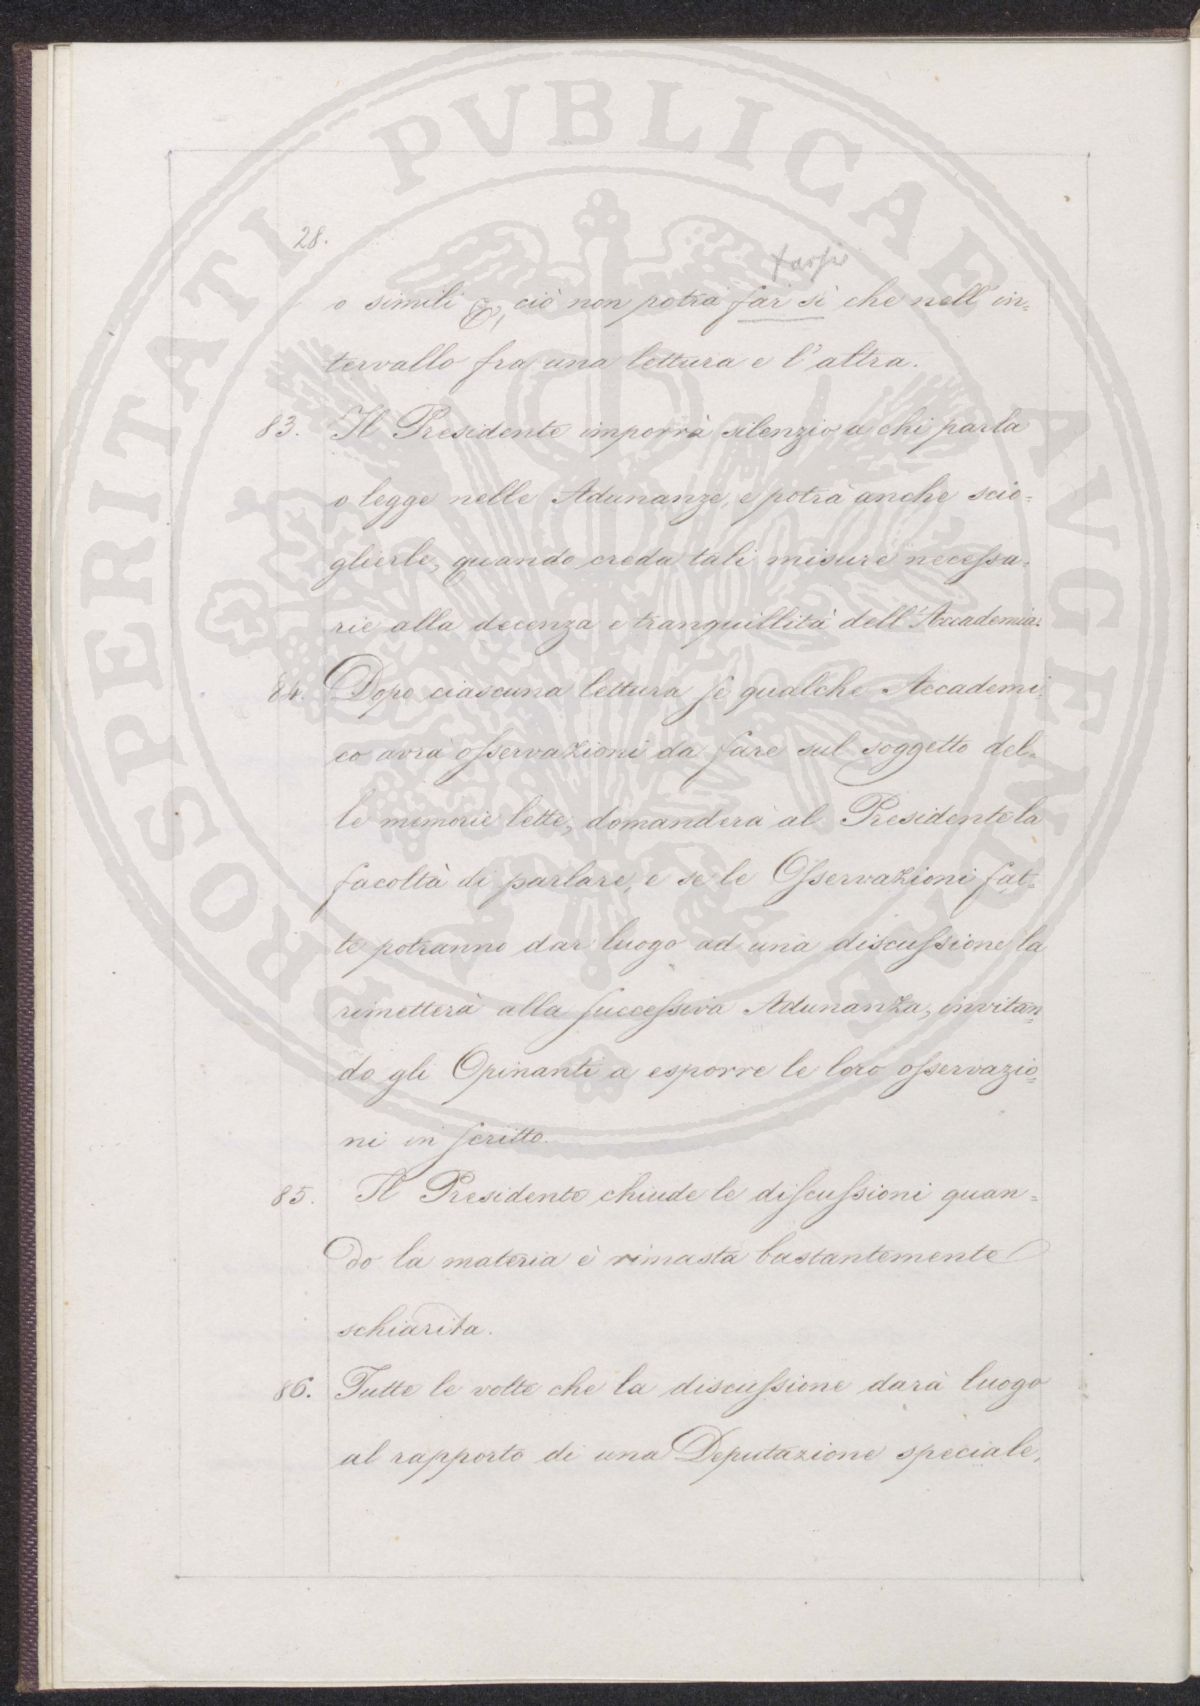 28.
farsi
o simili &, ciò non potrà far sì che nell'in=
tervallo fra una lettura e l'altra.
83. Il Presidente imporrà silenzio a chi parla
o legge nelle Adunanze, e potrà anche scio=
glierle, quando creda tali misure necessa=
rie alla decenza e tranquillità dell'Accademia.
84. Dopo ciascuna lettura se qualche Accademi=
co avrà osservazioni da fare sul soggetto del=
le memorie lette, domanderà al Presidente la
facoltà di parlare, e se le Osservazioni fat=
te potranno dar luogo ad una discussione la
rimetterà alla successiva Adunanza, invitan=
do gli Opinanti a esporre le loro osservazio=
ni in scritto.
85. Il Presidente chiude le discussioni quan=
do la materia è rimasta bastantemente
schiarita.
86. Tutte le volte che la discussione darà luogo
al rapporto di una Deputazione speciale,
PROSPERITATI PVBLICAE AVGENDAE